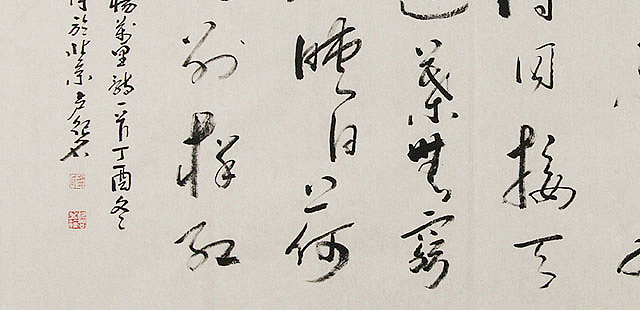 同接天
葉無窮
映日荷
別樣紅
楊萬里詩一首丁酉冬
於北京